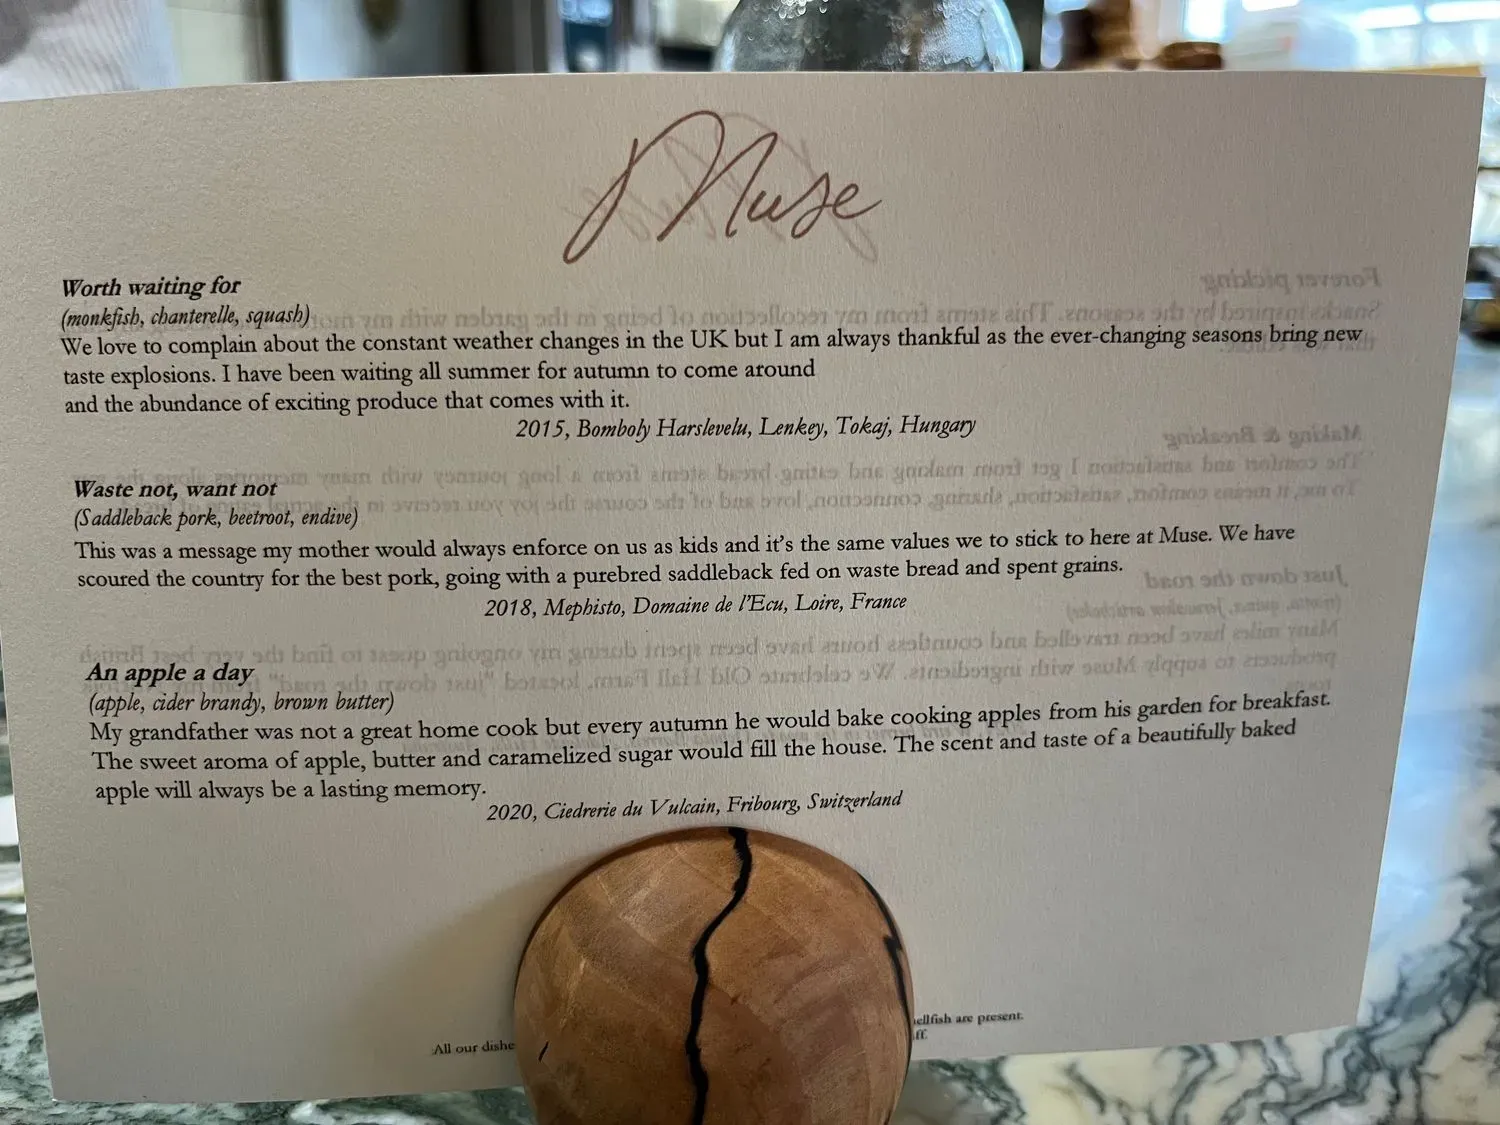 Muse
Worth waiting for
(monkfish, chanterelle, squash)
We love to complain about the constant weather changes in the UK but I am always thankful as the ever-changing seasons bring new
taste explosions. I have been waiting all summer for autumn to come around
and the abundance of exciting produce that comes with it.
2015, Bomboly Harslevelu, Lenkey, Tokaj, Hungary
Waste not, want not
(Saddleback pork, beetroot, endive)
This was a message my mother would always enforce on us as kids and it's the same values we to stick to here at Muse. We have
scoured the country for the best pork, going with a purebred saddleback fed on waste bread and spent grains.
2018, Mephisto, Domaine de l'Ecu, Loire, France
An apple a day
(apple, cider brandy, brown butter)
My grandfather was not a great home cook but every autumn he would bake cooking apples from his garden for breakfast.
The sweet aroma of apple, butter and caramelized sugar would fill the house. The scent and taste of a beautifully baked
apple will always be a lasting memory.
2020, Ciedrerie du Vulcain, Fribourg, Switzerland
ellfish are present.
All our dishe
Forever picking
Making & Breaking
Just down the road